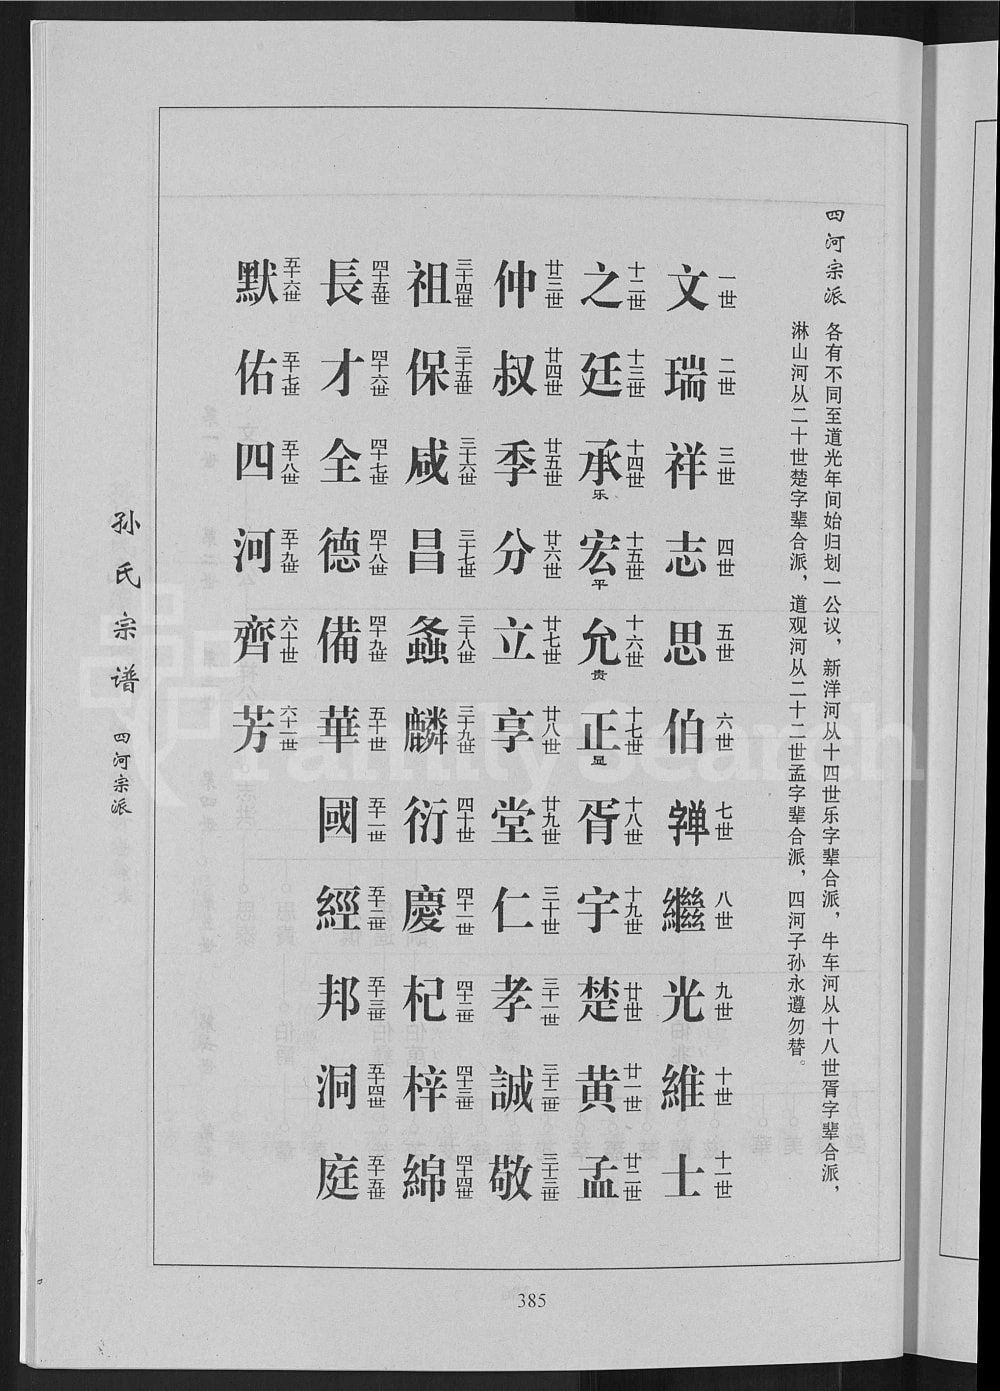 四河宗派
各有不同至道光年间始归划一公议，新洋河从十四世乐字辈合派，牛车河从十八世胥字辈合派，
淋山河从二十世楚字辈合派，道观河从二十二世孟字辈合派，四河子孙永遵勿替。
一世 二世 三世 四世 五世 六世 七世 八世 九世 十世 十一世
文 瑞 祥 志 思 伯 繼 光 維 士
十二世 十三世 十四世 十五世 十六世 十七世 十八世 十九世 廿世 廿一世 廿二世
之 廷 承乐 宏平 允贵 正显 胥 宇 楚 黄 孟
廿三世 廿四世 廿五世 廿六世 廿七世 廿八世 廿九世 三十世 三十一世 三十二世 三十三世
仲 叔 季 分 立 享 堂 仁 孝 誠 敬
三十四世 三十五世 三十六世 三十七世 三十八世 三十九世 四十世 四十一世 四十二世 四十三世 四十四世
祖 保 咸 昌 螽 麟 衍 慶 杞 梓 綿
四十五世 四十六世 四十七世 四十八世 四十九世 五十世 五十一世 五十二世 五十三世 五十四世 五十五世
長 才 全 德 備 華 國 經 邦 洞 庭
五十六世 五十七世 五十八世 五十九世 六十世 六十一世
默 佑 四 河 齊 芳
孙氏宗谱 四河宗派
385
FamilySearch